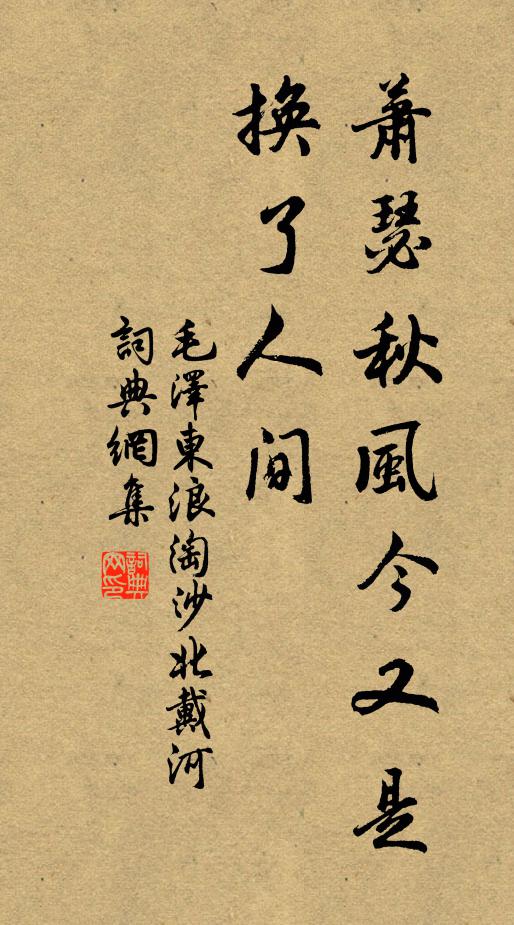 蕭瑟秋風今又是
換了人間
毛澤東浪淘沙北戴河
詞典網集
詞典网印